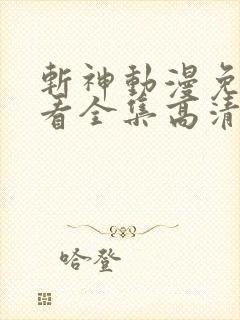 斬神動漫免
看全集高清
哈登